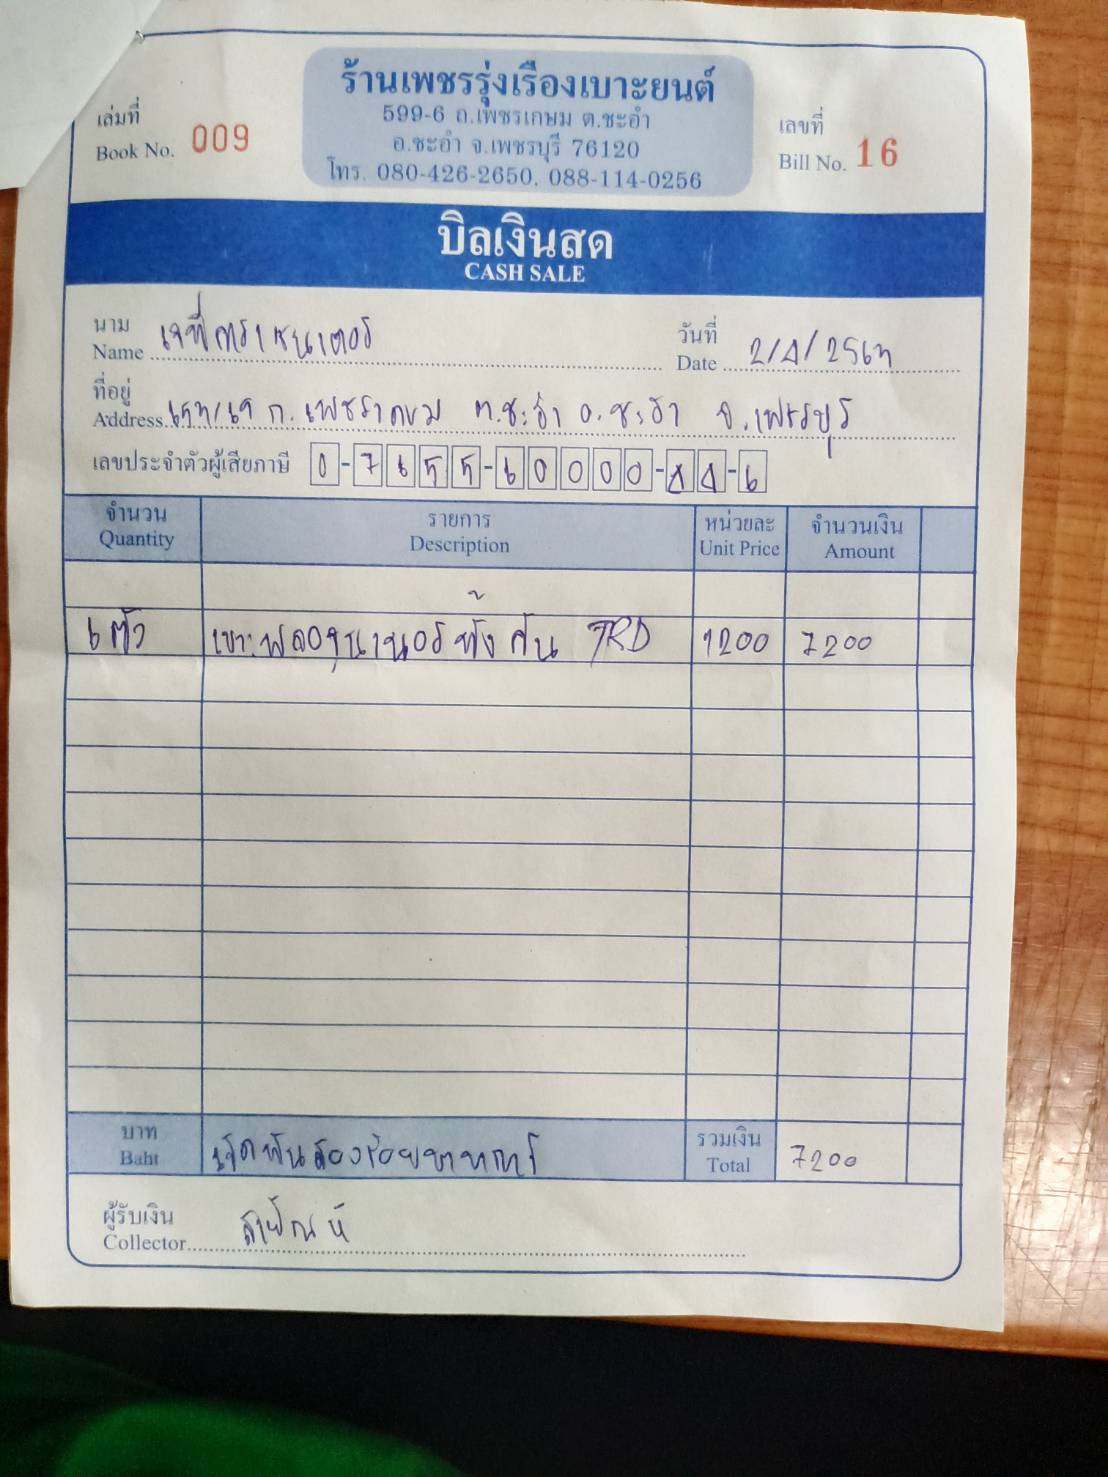 ร้านเพชรรุ่งเรืองเบาะยนต์
599-6 ถ.เพชรเกษม ต.ชะอำ
อ.ชะอำ จ.เพชรบุรี 76120
โทร. 080-426-2650, 088-114-0256
เล่มที่
Book No. 009
เลขที่
Bill No. 16
บิลเงินสด
CASH SALE
นาม
Name
วันที่
Date 2/4/256
ที่อยู่
Address ต.ชะอำ อ.ชะอำ จ.เพชรบุรี
เลขประจำตัวผู้เสียภาษี 0-7655-60000-44-6
จำนวน รายการ หน่วยละ จำนวนเงิน
Quantity Description Unit Price Amount
6 ตัว เบาะฟอจูนเนอร์ทั้งคัน TRD 1200 7200
บาท เจ็ดพันสองร้อยบาท รวมเงิน
Baht Total 7200
ผู้รับเงิน
Collector